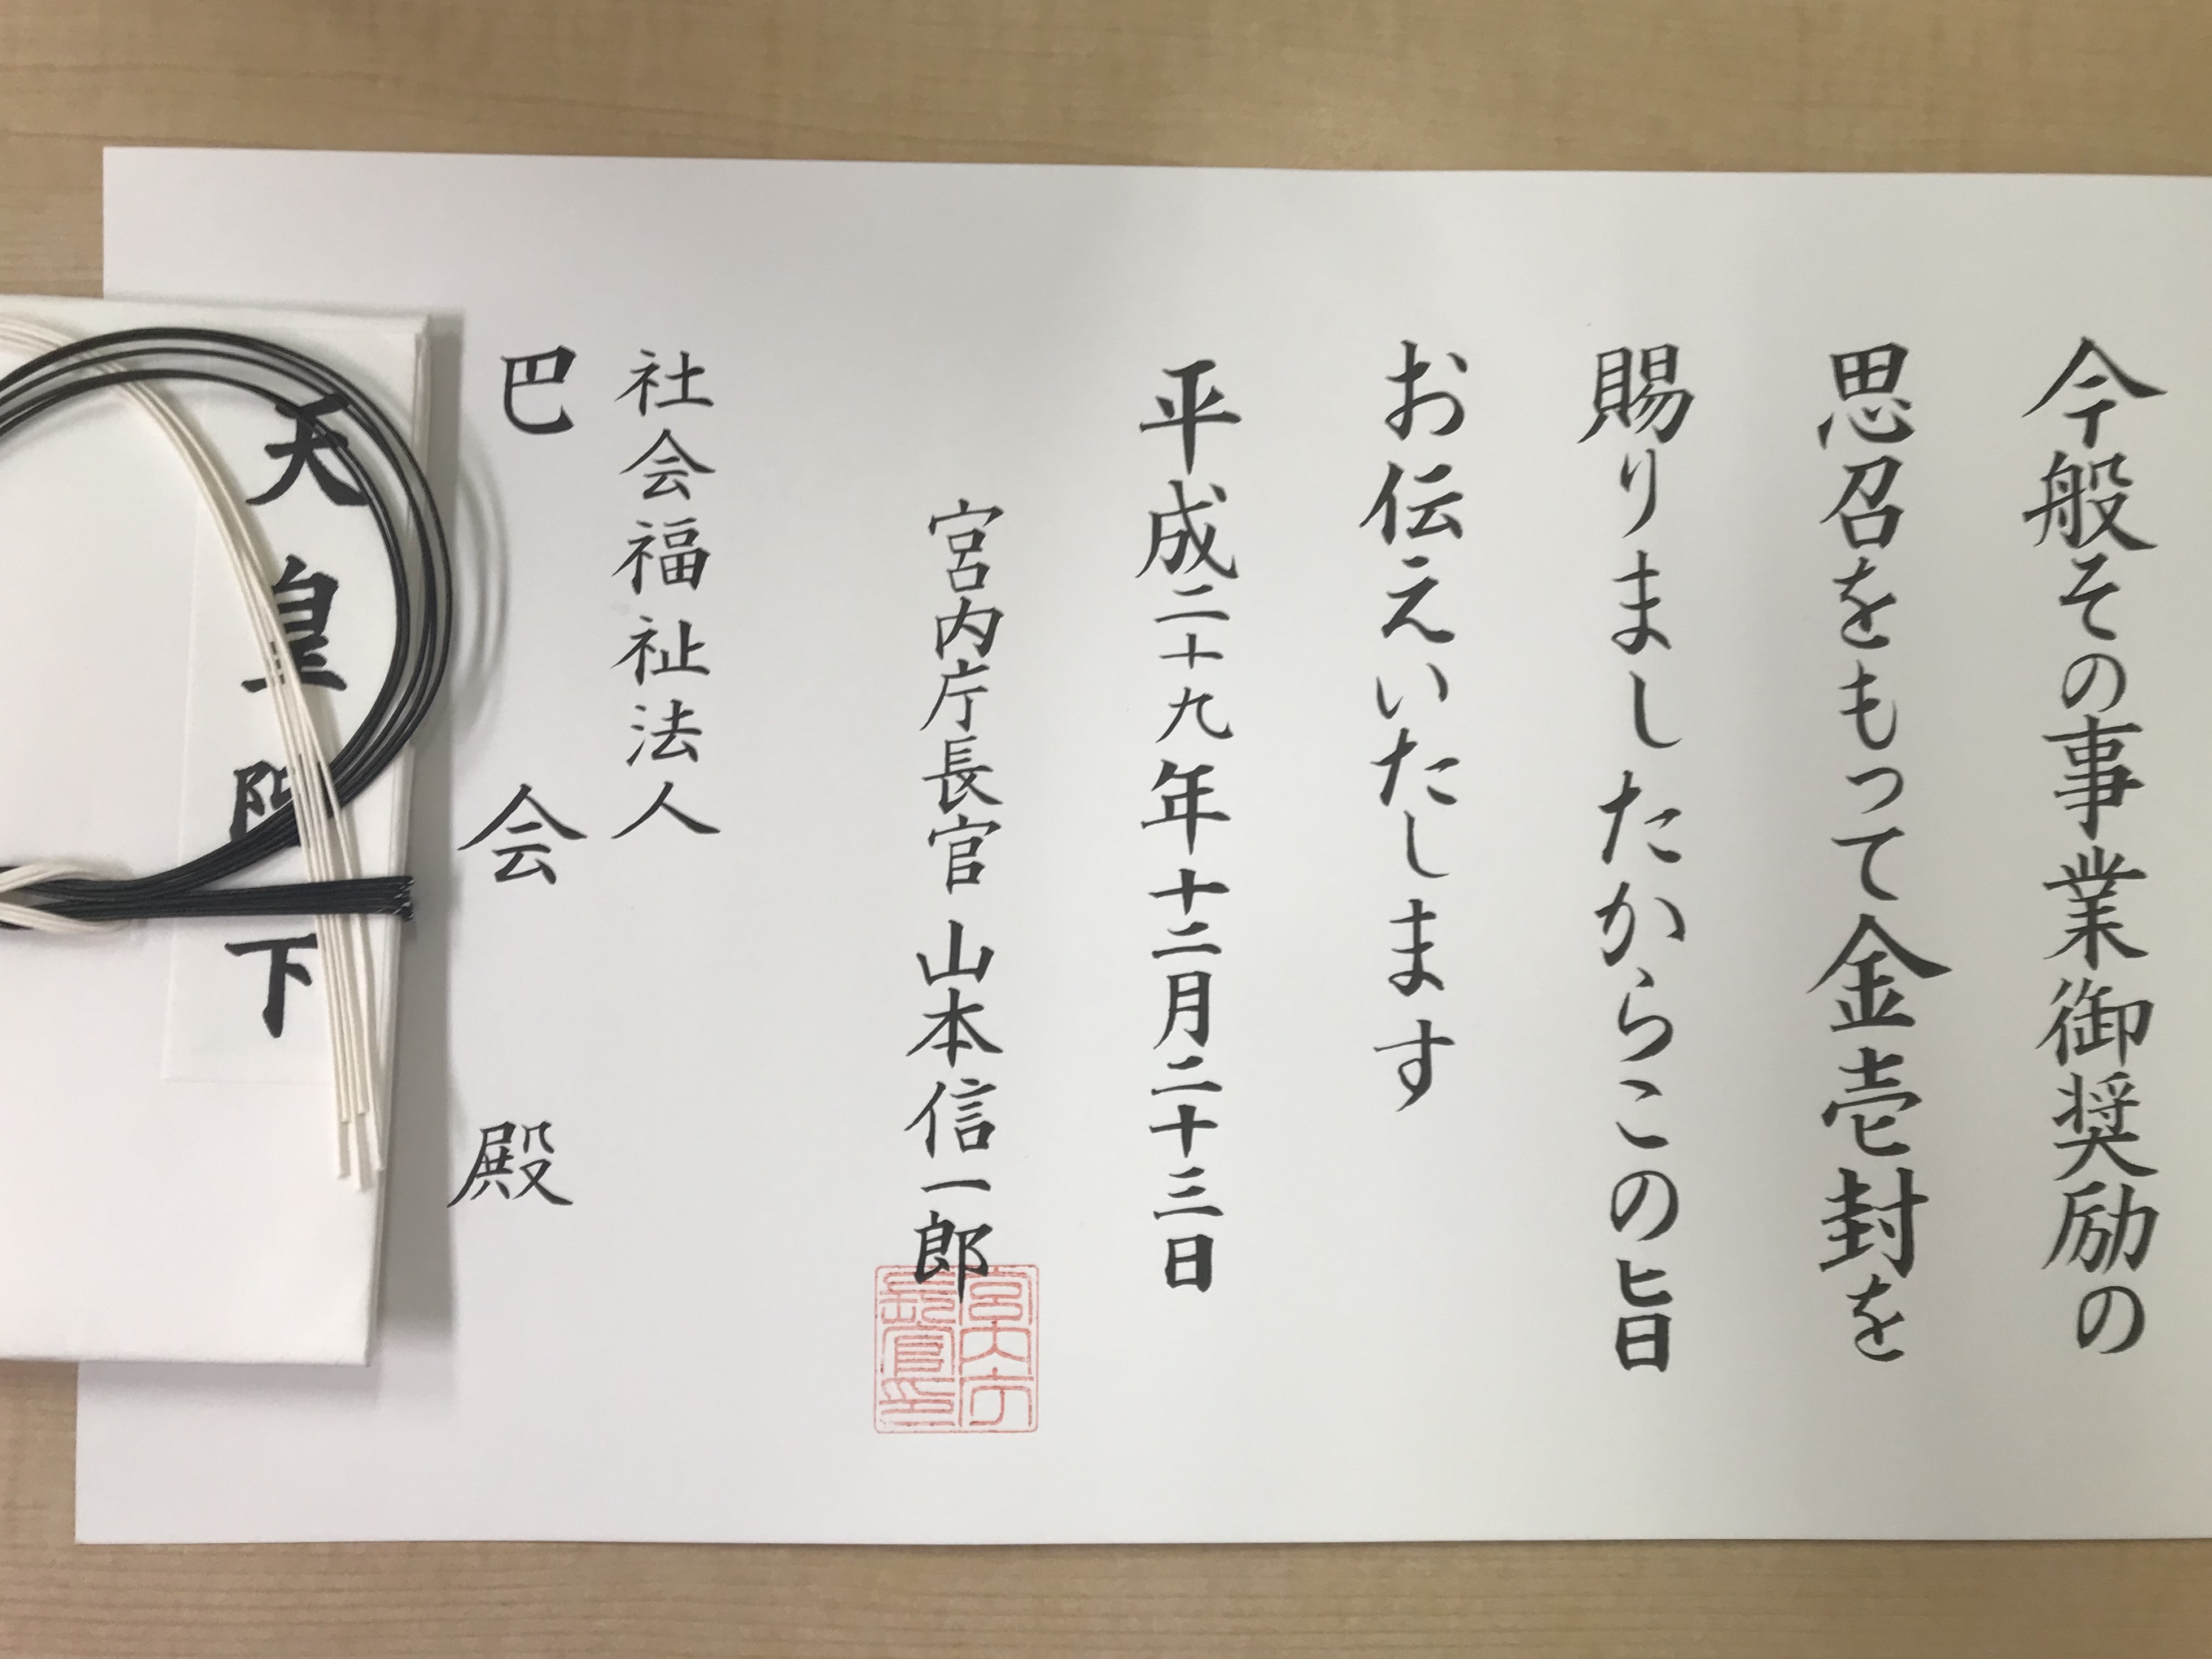 今般その事業御奨励の
思召をもって金壱封を
賜りましたからこの旨
お伝えいたします
平成二十九年十二月二十三日
宮内庁長官 山本信一郎
宮内庁
長官印
社会福祉法人
巴会殿
天皇陛下